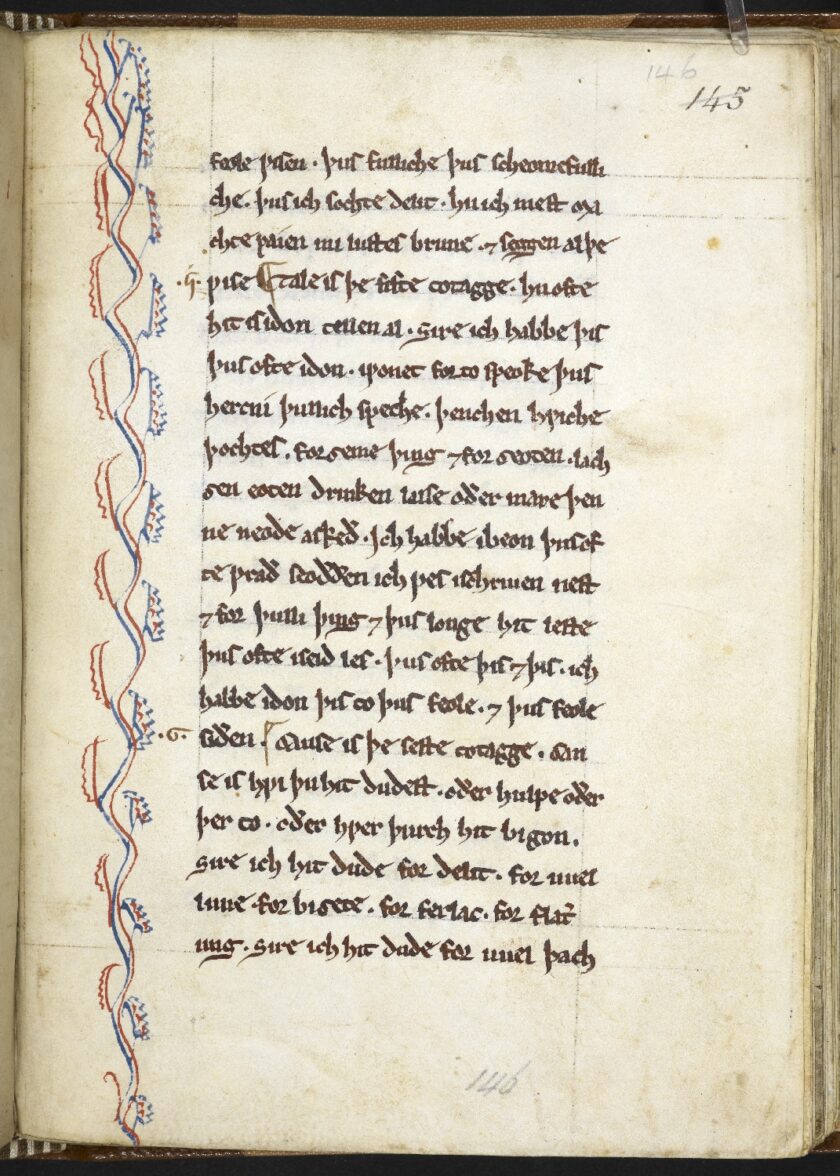 146
145
feole ƿisen · þus fulliche þus scheomefulli
che · þus ich sochte delit · hu ich mest ma
chte paien mi lustes brune · ⁊ seggen al þe
·h̓· ƿise Tale is þe fifte totagge · hu ofte
hit is idon tellen al · Sire ich habbe þis
þus ofte idon · iƿonet for to speoke þus
hercni þullich speche · þenchen hƿiche
þochtes · for ȝeme þing ⁊ for ȝeoten · lach
ȝen eoten drinken lasse oðer mare þen
ne neode askeð · Ich habbe ibeon þus of
te ƿrað seoððen ich ƿes ischriuen nest
⁊ for þulli þing ⁊ þus longe hit leste
þus ofte iseid les · þus ofte þis ⁊ þis · ich
habbe idon þis to þus feole · ⁊ þus feole
·G· siðen · Cause is þe seste totagge · Cau
se is hƿi þu hit dudest · oðer hulpe oðer
þer to · oðer hƿer þurch hit bigon ·
Sire ich hit dude for delit · for uuel
luue · for biȝete · for ferlac · for flat̓
ung · Sire ich hit dude for uuel þach
146